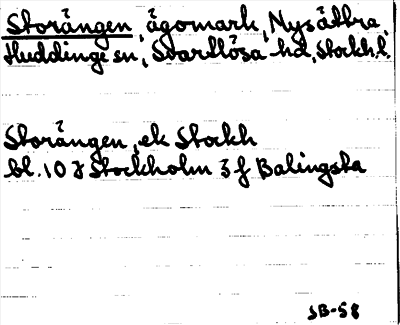 Storängen, ägomark, Nysätra,
Huddinge sn, Svartlösa hd, Stockh.l.
Storängen, ek Stockh
bl. 10 I Stockholm 3 f Balingsta
SB-58